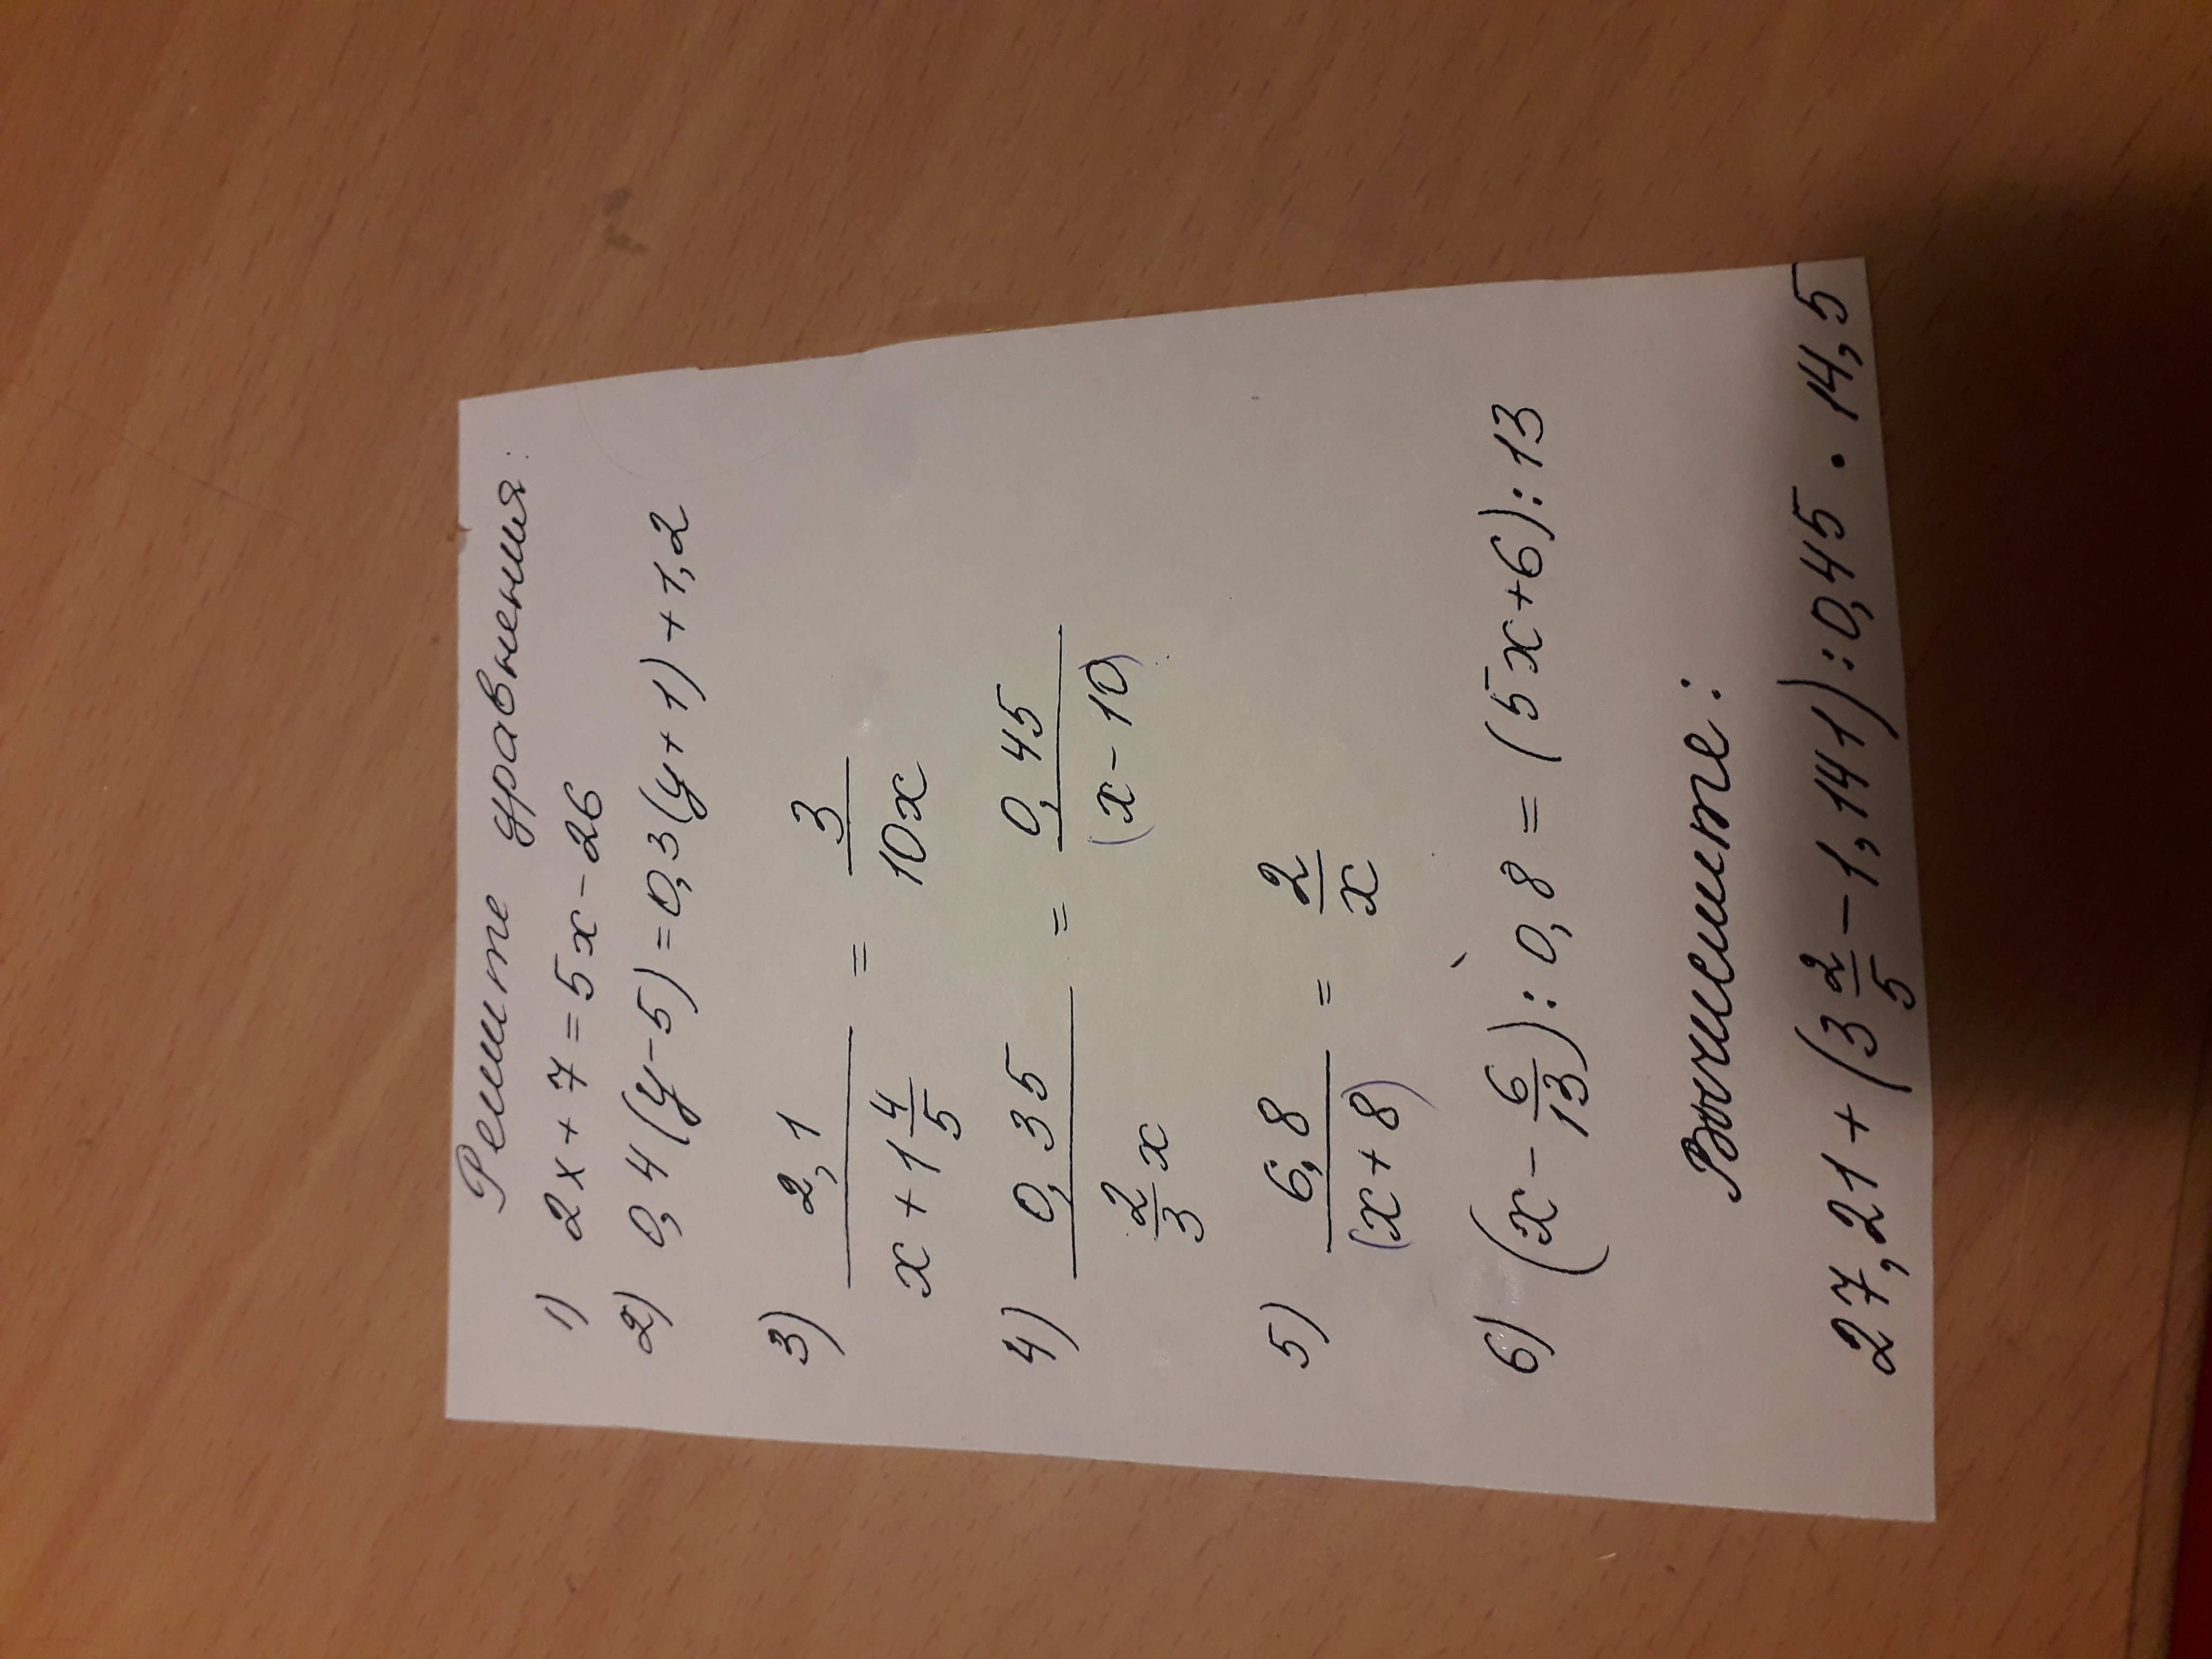 Решите уравнения:
1) 2x + 7 = 5x - 26
2) 0,4(y-5) = 0,3(y+1) + 1,2
3) 2,1 / x + 1 4/5 = 3 / 10x
4) 0,35 / 2/3 x = 0,45 / (x - 10)
5) 6,8 / (x + 8) = 2 / x
6) (x - 6/13) : 0,8 = (5x+6) : 13
Вычислите:
27,21 + (3 2/5 - 1,141) : 0,45 · 14,5